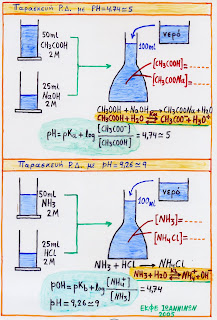 Παρασκευή Ρ.Δ. με PH=4,74≃5
50ml
CH₃COOH
2M
νερό
100ml
25ml
NaOH
2M
[CH₃COOH]=
[CH₃COONa]=
CH₃OOH + NaOH → CH₃COONa + H₂O
CH₃COOH + H₂O ⇌ CH₃COO⁻ + H₃O⁺
pH = pKa + log [CH₃COO⁻]/[CH₃COOH] = 4,74≃5
Παρασκευή Ρ.Δ. με pH=9,26≃9
50ml
NH₃
2M
νερό
100ml
25ml
HCl
2M
[NH₃]=
[NH₄Cl]=
NH₃ + HCl → NH₄Cl
NH₃ + H₂O ⇌ NH₄⁺ + OH⁻
pOH = pKb + log [NH₄⁺]/[NH₃] = 4,74
pH = 9,26≃9
ΕΚΦΕ ΙΩΑΝΝΙΝΩΝ
2005